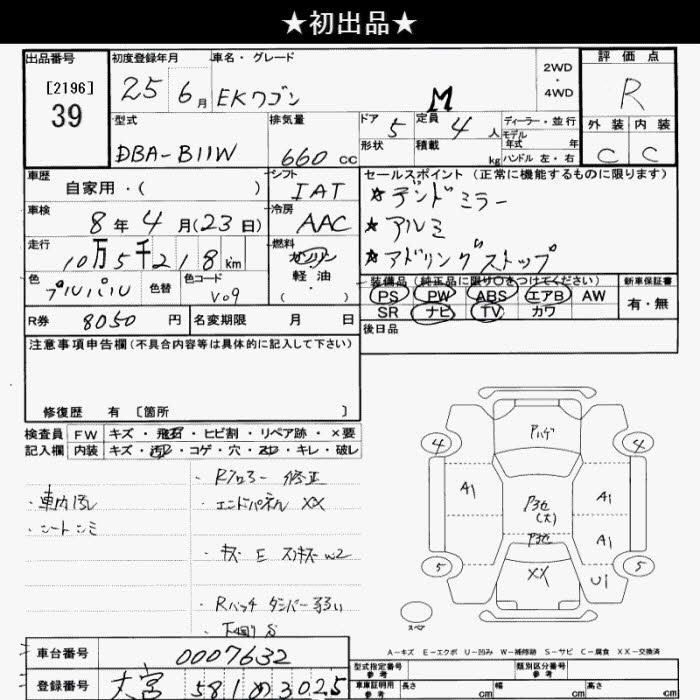 ★初出品★
出品番号
[2196]
39
初度登録年月
25 6月
車名・グレード
EKワゴン M
2WD
・
4WD
評価点
R
外装 内装
C C
型式
DBA-B11W
排気量
660 cc
ドア
5
定員
4人
形状
積載
kg
ディーラー・並行
モデル
年式 年
ハンドル 左・右
車歴
自家用・( )
シフト
IAT
車検
8年4月(23日)
冷房
AAC
走行
10万5千218km
燃料
ガソリン
軽・油
( )
色
色替
色コード
V09
セールスポイント(正常に機能するものに限ります)
★アルミ
★アドリングストップ
装備品(純正品に限り○をつけてください)
PS PW ABS エアB AW
SR ナビ TV カワ
新車保証書
有・無
後日品
R券 8050円
名変期限 月 日
注意事項申告欄(不具合内容等は具体的に記入して下さい)
修復歴 有 〔箇所 〕
検査員
記入欄
FW キズ・飛石・ヒビ割・リペア跡・×要
内装 キズ・汚れ・コゲ・穴・・キレ・破レ
・エンドパネル XX
4 4
A1 A1
A1
XX U1
5 5
スペア
A-キズ E-エクボ U-凹み W-補修跡 S-サビ C-腐食 XX-交換済
車台番号
0007632
登録番号
大宮 581 め 3025
型式指定番号
参考
類別区分番号
参考
車庫証明用
参考
長さ cm
幅 cm
高さ cm